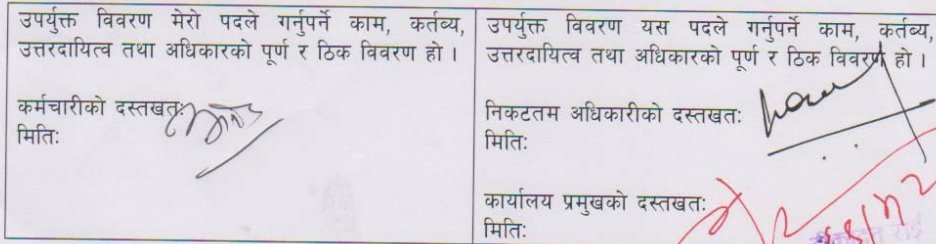 उपर्युक्त विवरण मेरो पदले गर्नुपर्ने काम, कर्तब्य,
उत्तरदायित्व तथा अधिकारको पूर्ण र ठिक विवरण हो ।
कर्मचारीको दस्तखतः
मितिः
उपर्युक्त विवरण यस पदले गर्नुपर्ने काम, कर्तब्य,
उत्तरदायित्व तथा अधिकारको पूर्ण र ठिक विवरण हो ।
निकटतम अधिकारीको दस्तखतः
मितिः
कार्यालय प्रमुखको दस्तखतः
मितिः